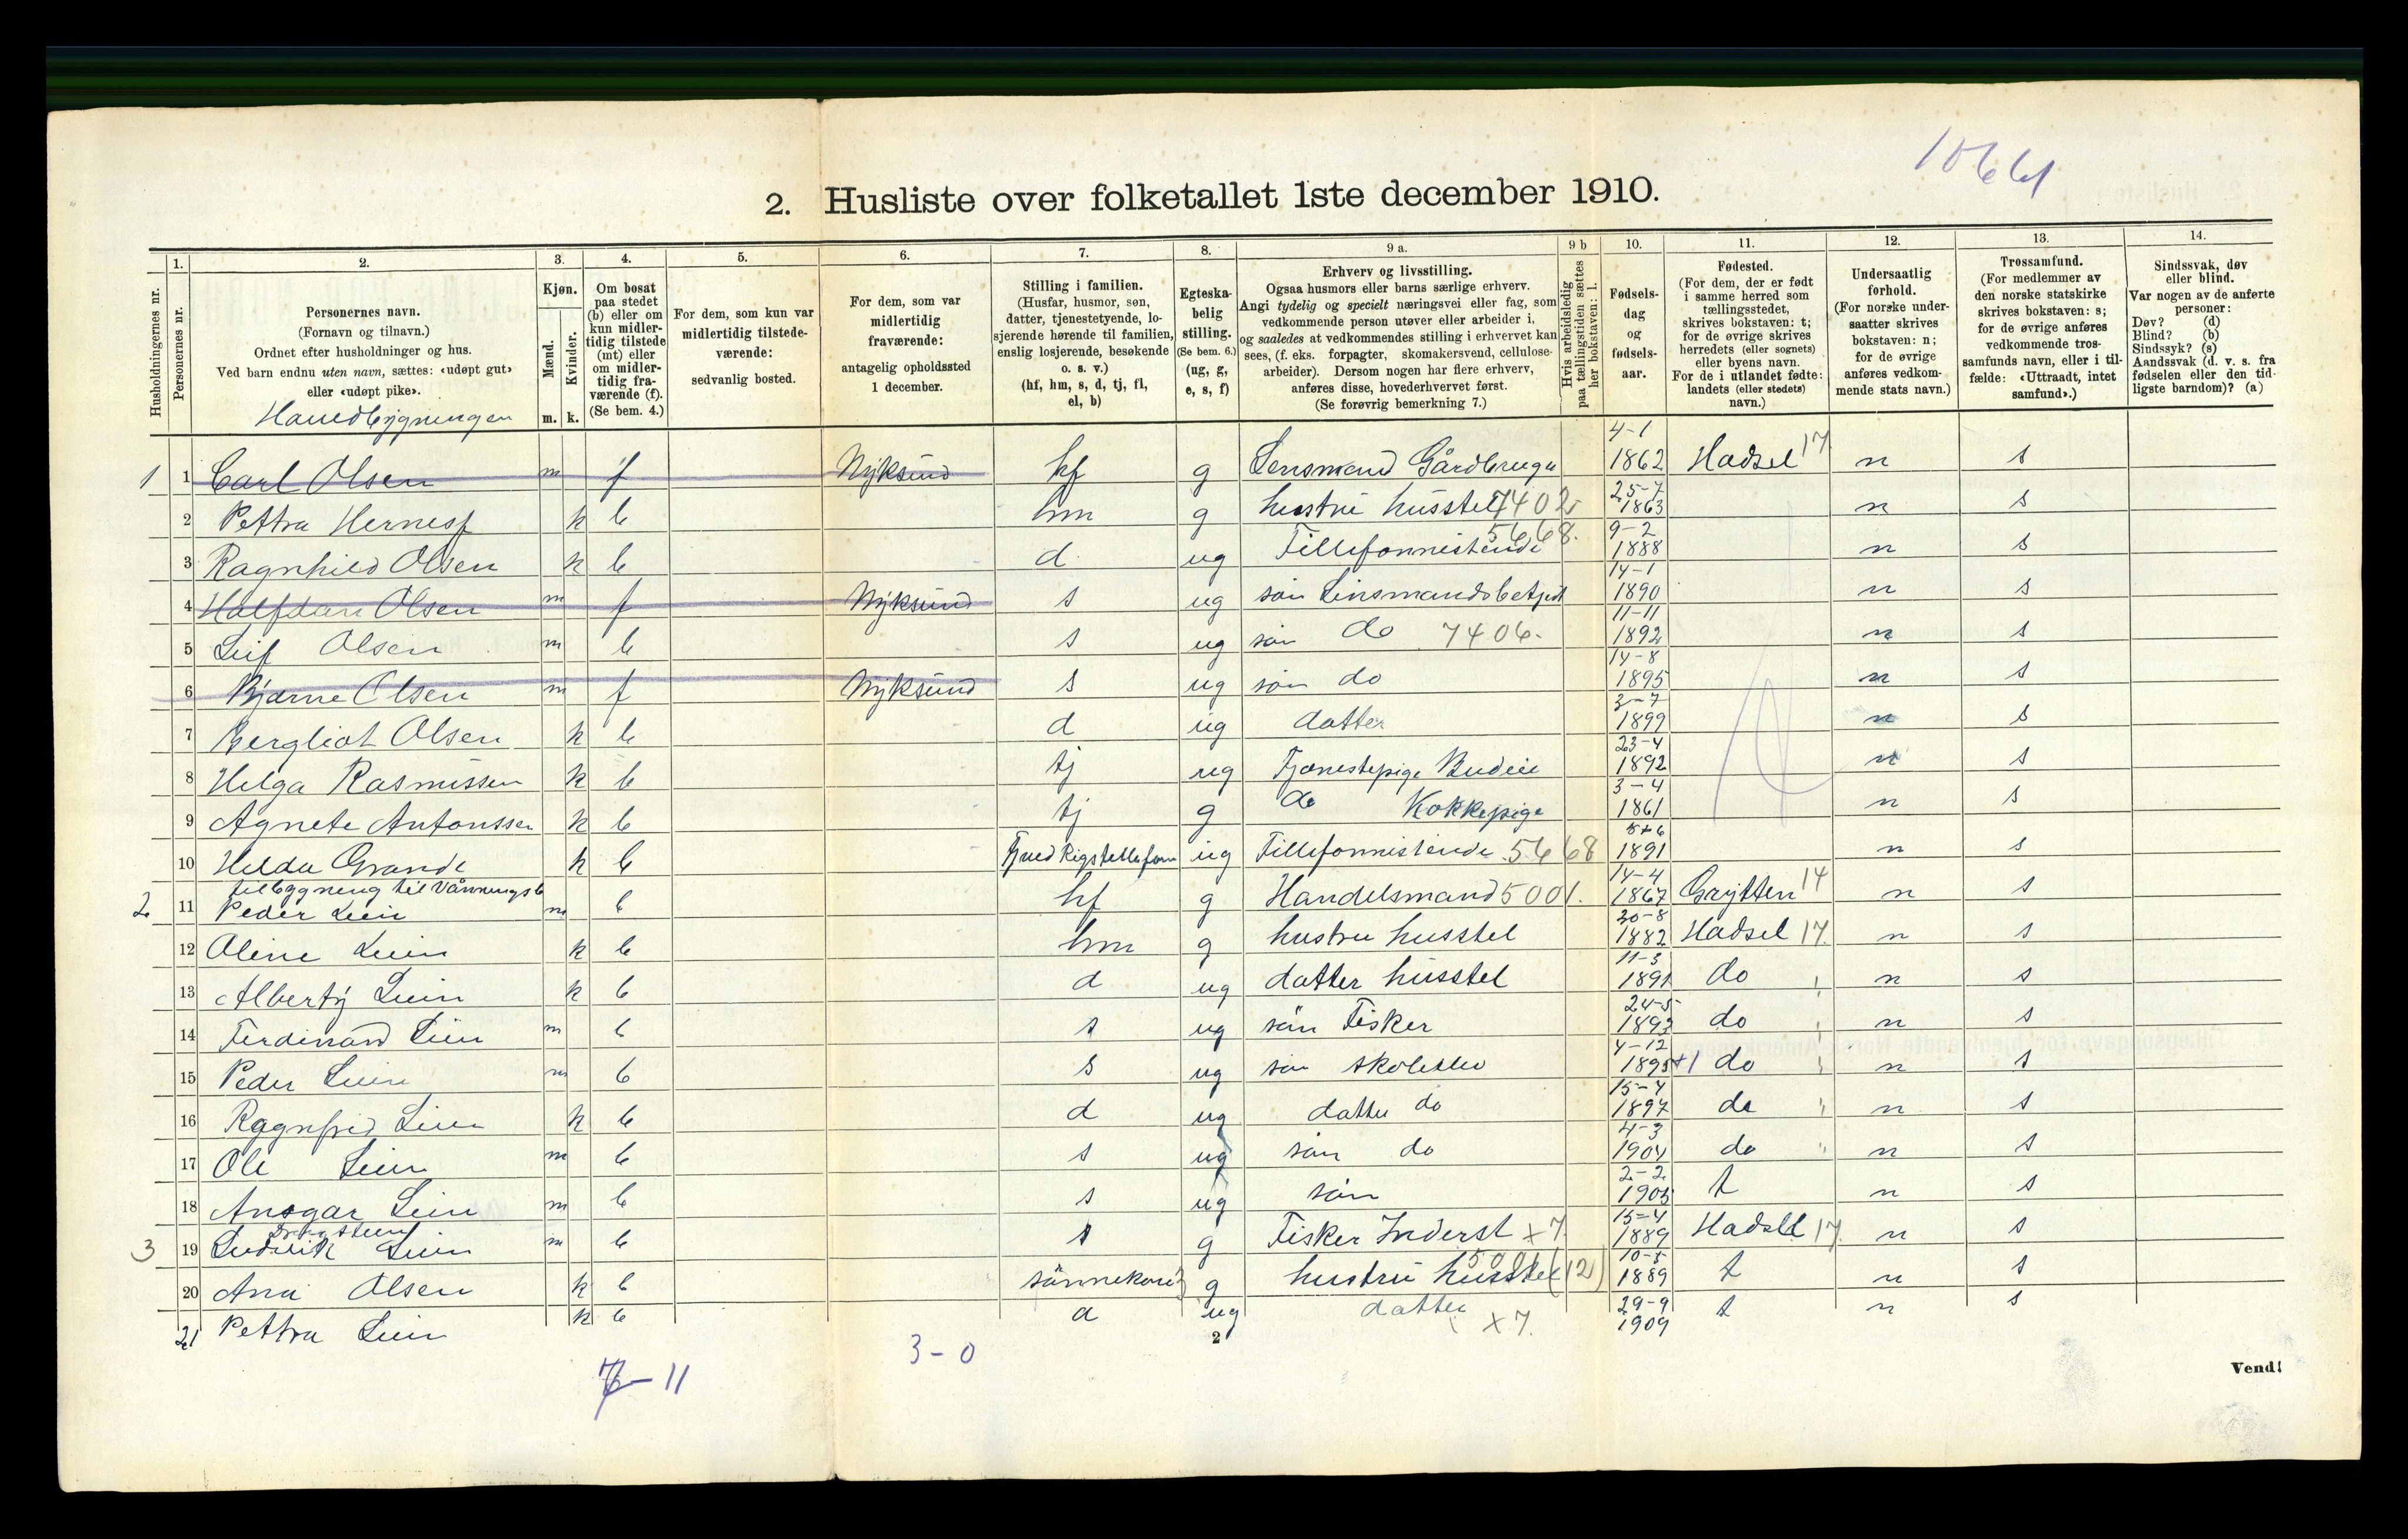 10661
2. Husliste over folketallet 1ste december 1910.
Husholdningernes nr.
1.
Personernes nr.
2.
Personernes navn.
(Fornavn og tilnavn.)
Ordnet efter husholdninger og hus.
Ved barn endnu uten navn, sættes: «udøpt gut»
eller «udøpt pike».
Hovedbygningen
3.
Kjøn.
Mænd.
Kvinder.
m. k.
4.
Om bosat
paa stedet
(b) eller om
kun midler-
tidig tilstede
(mt) eller
om midler-
tidig fra-
værende (f).
(Se bem. 4.)
5.
For dem, som kun var
midlertidig tilstede-
værende:
sedvanlig bosted.
6.
For dem, som var
midlertidig
fraværende:
antagelig opholdssted
1 december.
7.
Stilling i familien.
(Husfar, husmor, søn,
datter, tjenestetyende, lo-
sjerende hørende til familien,
enslig losjerende, besøkende
o. s. v.)
(hf, hm, s, d, tj, fl,
el, b)
8.
Egteska-
belig
stilling.
(Se bem. 6.)
(ug, g,
e, s, f)
9 a.
Erhverv og livsstilling.
Ogsaa husmors eller barns særlige erhverv.
Angi tydelig og specielt næringsvei eller fag, som
vedkommende person utøver eller arbeider i,
og saaledes at vedkommendes stilling i erhvervet kan
sees, (f. eks. forpagter, skomakersvend, cellulose-
arbeider). Dersom nogen har flere erhverv,
anføres disse, hovederhvervet først.
(Se forøvrig bemerkning 7.)
9 b
Hvis arbeidsledig
paa tællingstiden sættes
her bokstaven: l.
10.
Fødsels-
dag
og
fødsels-
aar.
11.
Fødested.
(For dem, der er født
i samme herred som
tællingsstedet,
skrives bokstaven: t;
for de øvrige skrives
herredets (eller sognets)
eller byens navn.
For de i utlandet fødte:
landets (eller stedets)
navn.)
12.
Undersaatlig
forhold.
(For norske under-
saatter skrives
bokstaven: n;
for de øvrige
anføres vedkom-
mende stats navn.)
13.
Trossamfund.
(For medlemmer av
den norske statskirke
skrives bokstaven: s;
for de øvrige anføres
vedkommende tros-
samfunds navn, eller i til-
fælde: «Uttraadt, intet
samfund».)
14.
Sindssvak, døv
eller blind.
Var nogen av de anførte
personer:
Døv? (d)
Blind? (b)
Sindssyk? (s)
Aandssvak (d. v. s. fra
fødselen eller den tid-
ligste barndom)? (a)
1 1 Carl Olsen m f Nyksund hf g Lensmand Gårdbruger 4-1 1862 Hadsel 17 n s
2 Pettra Hernesf k b hm g hustru husstel 7402 25-7 1863 n s
3 Ragnhild Olsen k b d ug Tillefonnistinde 5668. 9-2 1888 n s
4 Halfdan Olsen m f Nyksund s ug sön 14-1 1890 n s
5 Leif Olsen m b s ug sön do 7406. 11-11 1892 n s
6 Bjarne Olsen m f Nyksund s ug sön do 14-8 1895 n s
7 Bergliot Olsen k b d ug datter 3-7 1899 n s
8 Helga Rasmussen k b tj ug Tjenestepige Budeie 23-4 1892 n s
9 Agnete Antonssen k b tj g do Kokkepige 3-4 1861 n s
10 Helda Grande k b ug Tillefonnistinde 5668 1891 n s
2 11 Peder Lein m b hf g Handelsmand 5001. 14-4 1867 Grytten 14 n s
12 Oline Lein k b hm g hustru husstel 20-8 1882 Hadsel 17 n s
13 Alberty Lein k b d ug datter husstel 11-3 1891 do n s
14 Ferdinand Lein m b s ug sön Fisker 24-5 1893 do n s
15 Peder Lein m b s ug sön 4-12 1895 +1 do n s
16 Ragnfrid Lein k b d ug datter do 15-4 1897 do n s
17 Ole Lein m b s ug sön do 4-3 1904 do n s
18 Ansgar Lein m b s ug sön 2-2 1905 t n s
3 19 Ludvik Lein m b s g Fisker Inderst x7 15-4 1889 Hadsel 17 n s
20 Ana Olsen k b sönnekone g hustru husstel (12) 10-5 1889 t n s
21 Pettra Lein k b d ug datter x7. 29-9 1909 t n s
2
3-0
11
Vend!